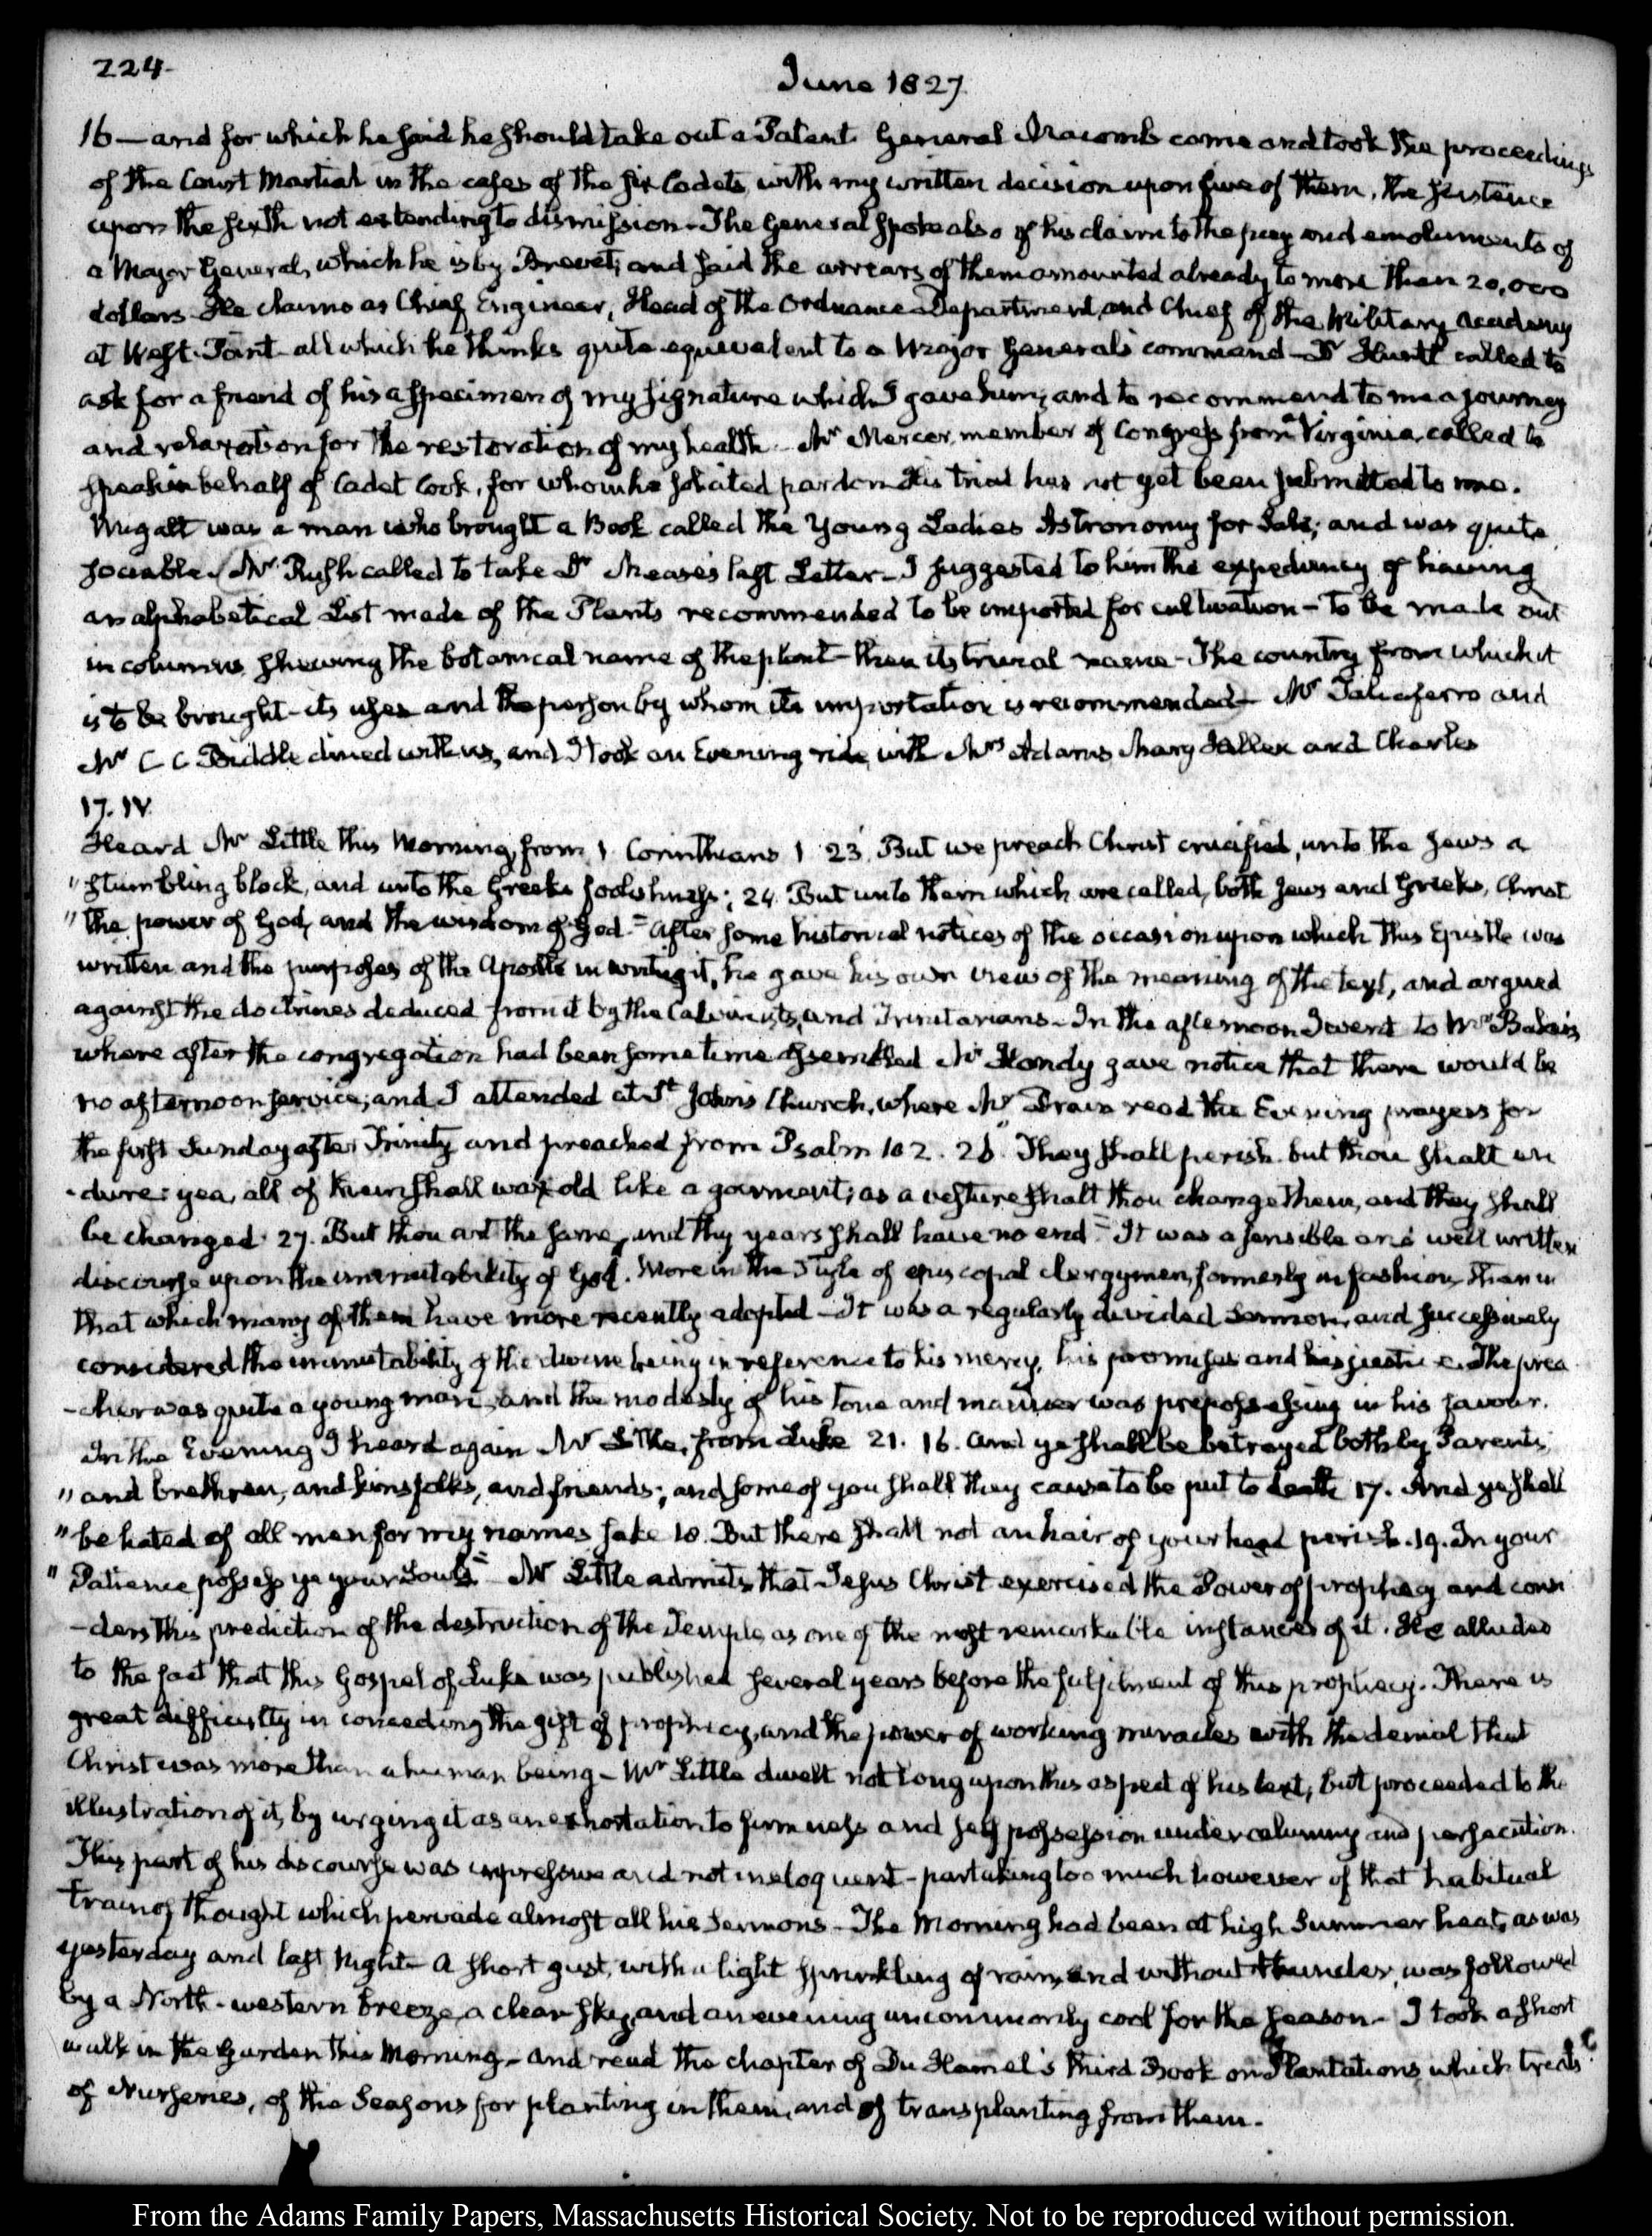 224.
June 1827
16 — and for which he said he should take out a Patent. General Macomb came and took the proceedings
of the Court Martial in the cases of the six Cadets, with my written decision upon five of them, the sentence
upon the sixth not extending to dismission. The General spoke also of his claim to the pay and emoluments of
a Major General, which he is by Brevet; and said the arrears of them amounted already to more than 20,000
dollars. He claims as Chief Engineer, Head of the Ordnance Department, and Chief of the Military Academy
at West-Point all which he thinks quite equivalent to a Major General's command — Dr Huntt called to
ask for a friend of his a specimen of my signature which I gave him; and to recommend to me a journey
and relaxation for the restoration of my health. Mr Mercer, member of Congress from Virginia, called to
speak in behalf of Cadet Cook, for whom he solicited pardon. His trial has not yet been submitted to me.
Wigatt was a man who brought a Book called the Young Ladies Astronomy for Sale; and was quite
sociable. Mr Rush called to take Dr Mease's last Letter — I suggested to him the expediency of having
an alphabetical List made of the Plants recommended to be imported for cultivation — to be made out
in columns shewing the botanical name of the plant — then its trivial name — The country from which it
is to be brought — its uses and the person by whom its importation is recommended — Mr Taliaferro and
Mr C C Biddle dined with us, and I took an Evening ride with Mrs Adams Mary Hellen and Charles
17. IV.
Heard Mr Little this Morning, from 1 Corinthians 1 23. But we preach Christ crucified, unto the Jews a
" stumbling block, and unto the Greeks foolishness; 24. But unto them which are called, both Jews and Greeks, Christ
" the power of God, and the wisdom of God." After some historical notices of the occasion upon which this Epistle was
written and the purposes of the Apostle in writing it, he gave his own view of the meaning of the text, and argued
against the doctrines deduced from it by the Calvinists, and Trinitarians — In the afternoon I went to Mr Baker's
where after the congregation had been some time assembled Mr Handy gave notice that there would be
no afternoon service; and I attended at St Johns Church, where Mr Drain read the Evening prayers for
the first Sunday after Trinity and preached from Psalm 102. 26. "They shall perish. but thou shalt en
-dure: yea, all of them shall wax old like a garment; as a vesture shalt thou change them, and they shall
be changed 27. But thou art the same, and thy years shall have no end" It was a sensible and well written
discourse upon the immutability of God. More in the Style of episcopal clergymen, formerly in fashion, than in
that which many of them have more recently adopted — It was a regularly divided Sermon, and successively
considered the immutability of the divine being in reference to his mercy, his promises and his justice. The prea
-cher was quite a young man, and the modesty of his tone and manner was prepossessing in his favour.
In the Evening I heard again Mr Little, from Luke 21. 16. And ye shall be betrayed both by Parents,
" and brethren, and kinsfolks, and friends; and some of you shall they cause to be put to death 17. And ye shall
" be hated of all men for my names sake 18. But there shall not an hair of your head perish. 19. In your
" Patience possess ye your Souls." Mr Little admits that Jesus Christ exercised the Power of prophecy and consi
-ders this prediction of the destruction of the Temple, as one of the most remarkable instances of it. He alluded
to the fact that this Gospel of Luke was published several years before the fulfilment of this prophecy. There is
great difficulty in conceding the gift of prophecy, and the power of working miracles with the denial that
Christ was more than a human being — Mr Little dwelt not long upon this aspect of his text; but proceeded to the
illustration of it, by urging it as an exhortation to firmness and self possession under calumny and persecution.
This part of his discourse was impressive and not ineloquent — partaking too much however of that habitual
train of thought which pervade almost all his Sermons — The Morning had been at high Summer heat, as was
yesterday and last Night — A short gust, with a light sprinkling of rain, and without thunder, was followed
by a North-western breeze, a clear sky, and an evening uncommonly cool for the season — I took a short
walk in the Garden this Morning — and read the chapter of Du Hamel's third Book on Plantations which treats
of Nurseries, of the Seasons for planting in them, and of transplanting from them.
From the Adams Family Papers, Massachusetts Historical Society. Not to be reproduced without permission.